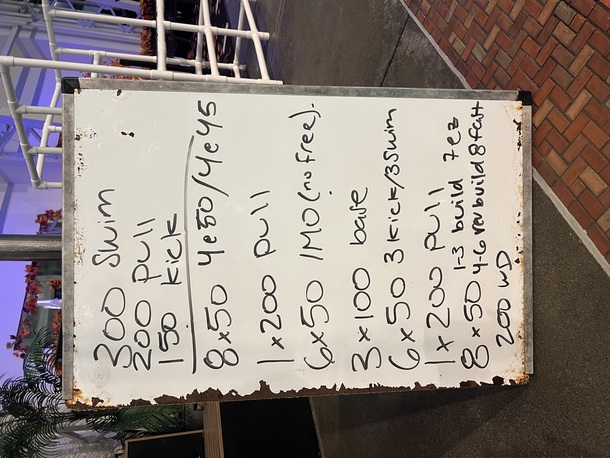 300 Swim
200 pull
150 kick
8x50 4e50/4e45
1x200 pull
6x50 IMO (no free).
3x100 base
6x50 3kick/3Swim
1x200 pull
8x50 1-3 build 7ez
4-6 rev build 8 fast
200 WD